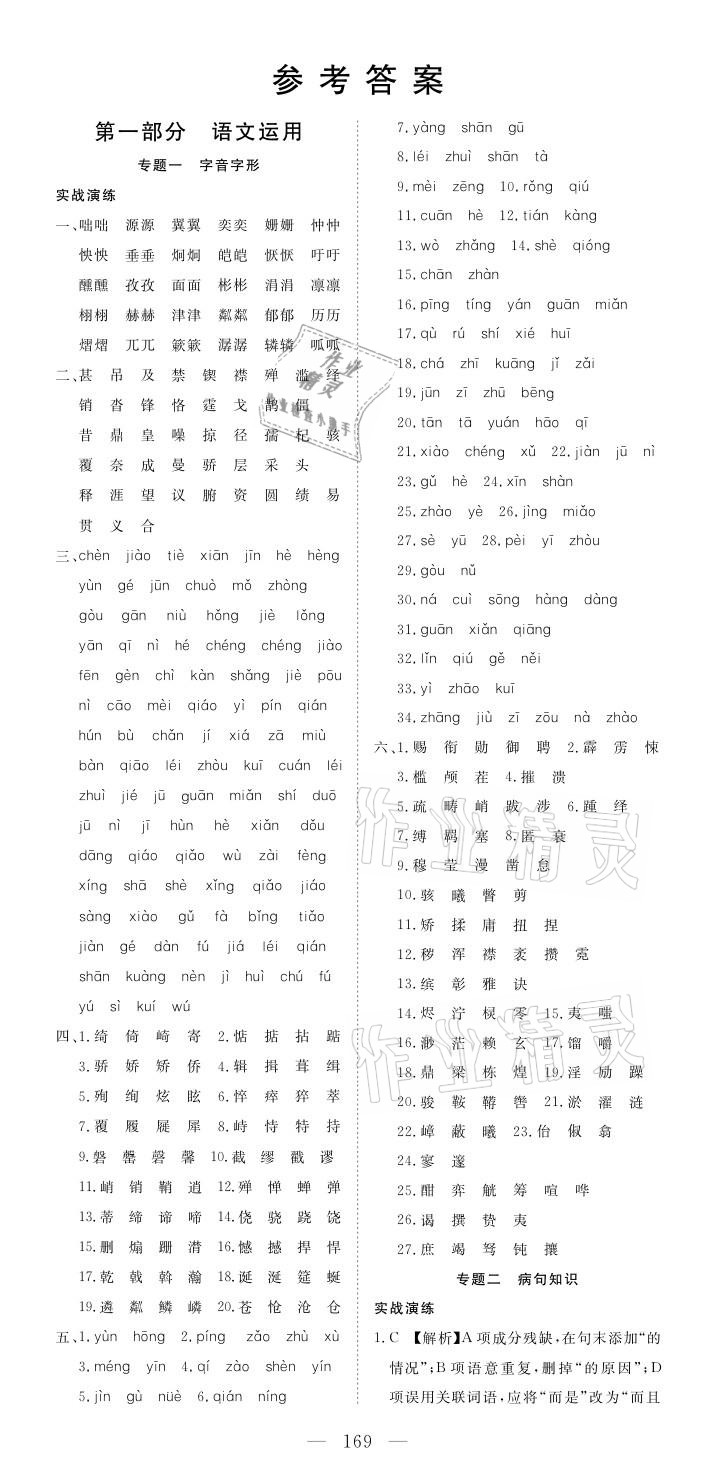 参考答案
第一部分 语文运用
专题一 字音字形
实战演练
一、咄咄 源源 翼翼 奕奕 姗姗 忡忡
怏怏 垂垂 炯炯 皑皑 恹恹 吁吁
醺醺 孜孜 面面 彬彬 涓涓 凛凛
栩栩 赫赫 津津 粼粼 郁郁 历历
熠熠 兀兀 簌簌 潺潺 辚辚 呱呱
二、甚 吊 及 禁 锲 襟 殚 滥 绎
销 沓 锋 恪 霆 戈 鹄 偪
昔 鼎 皇 噪 掠 径 孺 杞 骇
覆 奈 成 曼 骄 层 采 头
释 涯 望 议 腑 资 圆 绩 易
贯 义 合
三、chèn jiào tiè xiān jīn hè hèng
yùn gé jūn chuò mǒ zhòng
gòu gān niù hǒng jiè lǒng
yān qī nì hé chéng chéng jiào
fēn gèn chì kàn shǎng jiè pōu
nì cāo mèi qiáo yì pín qián
hún bù chǎn jí xī zā miù
bàn qiāo léi zhòu kuī cuán léi
zhuì jié jū guān mián shí duō
jū nì jī hùn hè xiàn dǒu
dāng qiáo qiào wù zài jīng
xíng shā shè xíng shāo jiào
sàng xiào gǔ fà bǐng tiǎo
jiàn gé dàn fú jiá léi qián
shān kuàng nèn jì huì chú fú
yú sì kuí wú
四、1.绮 倚 崎 寄 2.惦 掂 拈 踮
3.骄 娇 矫 侨 4.辑 揖 葺 缉
5.殉 绚 炫 眩 6.悴 瘁 猝 萃
7.覆 履 屣 犀 8.峙 恃 特 持
9.磐 罄 磬 馨 10.截 缪 戳 谬
11.峭 销 鞘 逍 12.殚 惮 蝉 弹
13.蒂 缔 谛 啼 14.侥 骁 跷 饶
15.删 煽 跚 潸 16.憾 撼 捍 悍
17.乾 戟 斡 瀚 18.诞 涎 筵 蜒
19.遴 粼 鳞 嶙 20.苍 怆 沧 仓
五、1.yùn hōng 2.píng zǎo zhù xù
3.méng yīn 4.qí zào shèn yín
5.jìn gù nüè 6.qián níng
7.yàng shān gū
8.léi zhuì shān tà
9.mèi zēng 10.rǒng qiú
11.cuān hè 12.tián kàng
13.wò zhǎng 14.shè qióng
15.chān zhàn
16.pīng tíng yán guān miǎn
17.qù rú shí xié huī
18.chá zhī kuāng jǐ zǎi
19.jūn zī zhū bēng
20.tān tā yuán hāo qī
21.xiáo chéng xǔ 22.jiàn jū nì
23.gǔ hè 24.xīn shàn
25.zhào yè 26.jìng miǎo
27.sè yū 28.pèi yī zhōu
29.gòu nǔ
30.ná cuì sōng hàng dàng
31.guān xiǎn qiāng
32.lǐn qiú gě něi
33.yì zhāo kuī
34.zhāng jiù zī zōu nà zhào
六、1.赐 衔 勋 御 聘 2.霹 雳 悚
3.槛 颅 茬 4.摧 溃
5.疏 畴 峭 跋 涉 6.踵 绎
7.缚 羁 塞 8.匿 衰
9.穆 莹 漫 凿 怠
10.骇 曦 瞥 剪
11.矫 揉 庸 扭 捏
12.秽 浑 襟 袤 攒 霓
13.缤 彰 雅 诀
14.烬 泞 棂 零 15.夷 嗤
16.渺 茫 赖 玄 17.馏 嚼
18.鼎 梁 栋 煌 19.淫 励 躁
20.骏 鞍 鞯 辔 21.淤 濯 涟
22.嶂 蔽 曦 23.佁 俶 翕
24.寥 邃
25.酣 弈 觥 筹 喧 哗
26.谒 撰 贽 夷
27.庶 竭 驽 钝 攘
专题二 病句知识
实战演练
1.C 【解析】A项成分残缺,在句末添加“的
情况”;B项语意重复,删掉“的原因”;D
项误用关联词语,应将“而是”改为“而且
— 169 —
作业精灵
作业检查小助手
作业精灵
作业精灵